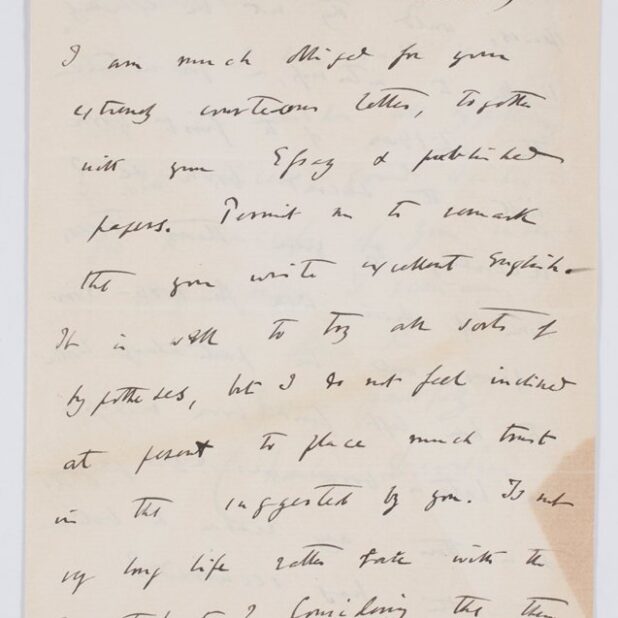 I am much obliged for your
extremely courteous letter, together
with your Essay & published
papers. Permit me to remark
that you write excellent English.
It is well to try all sorts of
hypotheses, but I do not feel inclined
at present to place much trust
in the suggested by you. Is not
very long life rather rare with the
Considering the